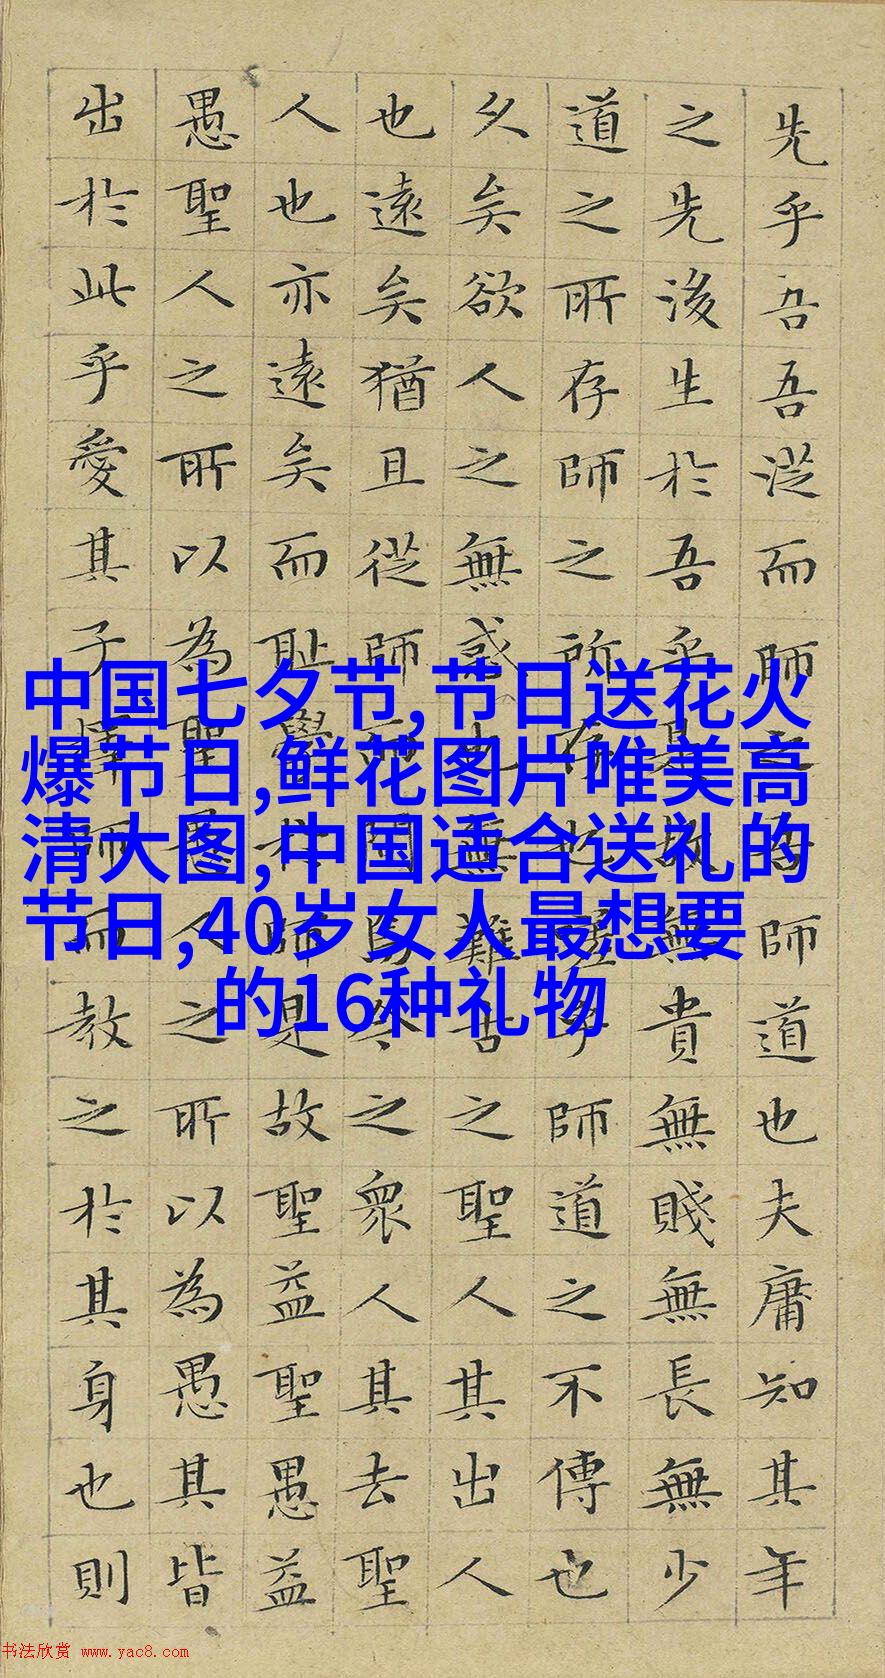 先乎吾吾從而師之吾師道也夫庸知其年
之先後生於吾乎是故無貴無賤無長無少
道之所存師之所存也嗟乎師道之不傳也
久矣欲人之無惑也無難古之聖人其出人
也遠矣猶且從師而問焉今之衆人其去聖
人也亦遠矣而恥學於師是故聖益聖愚益
愚聖人之所以為聖愚人之所以為愚其皆
出於此乎愛其子擇師而教之於其身也則
中国七夕节,节日送花火
爆节日,鲜花图片唯美高
清大图,中国适合送礼的
节日,40岁女人最想要
的16种礼物
书法欣赏 www.yac8.com